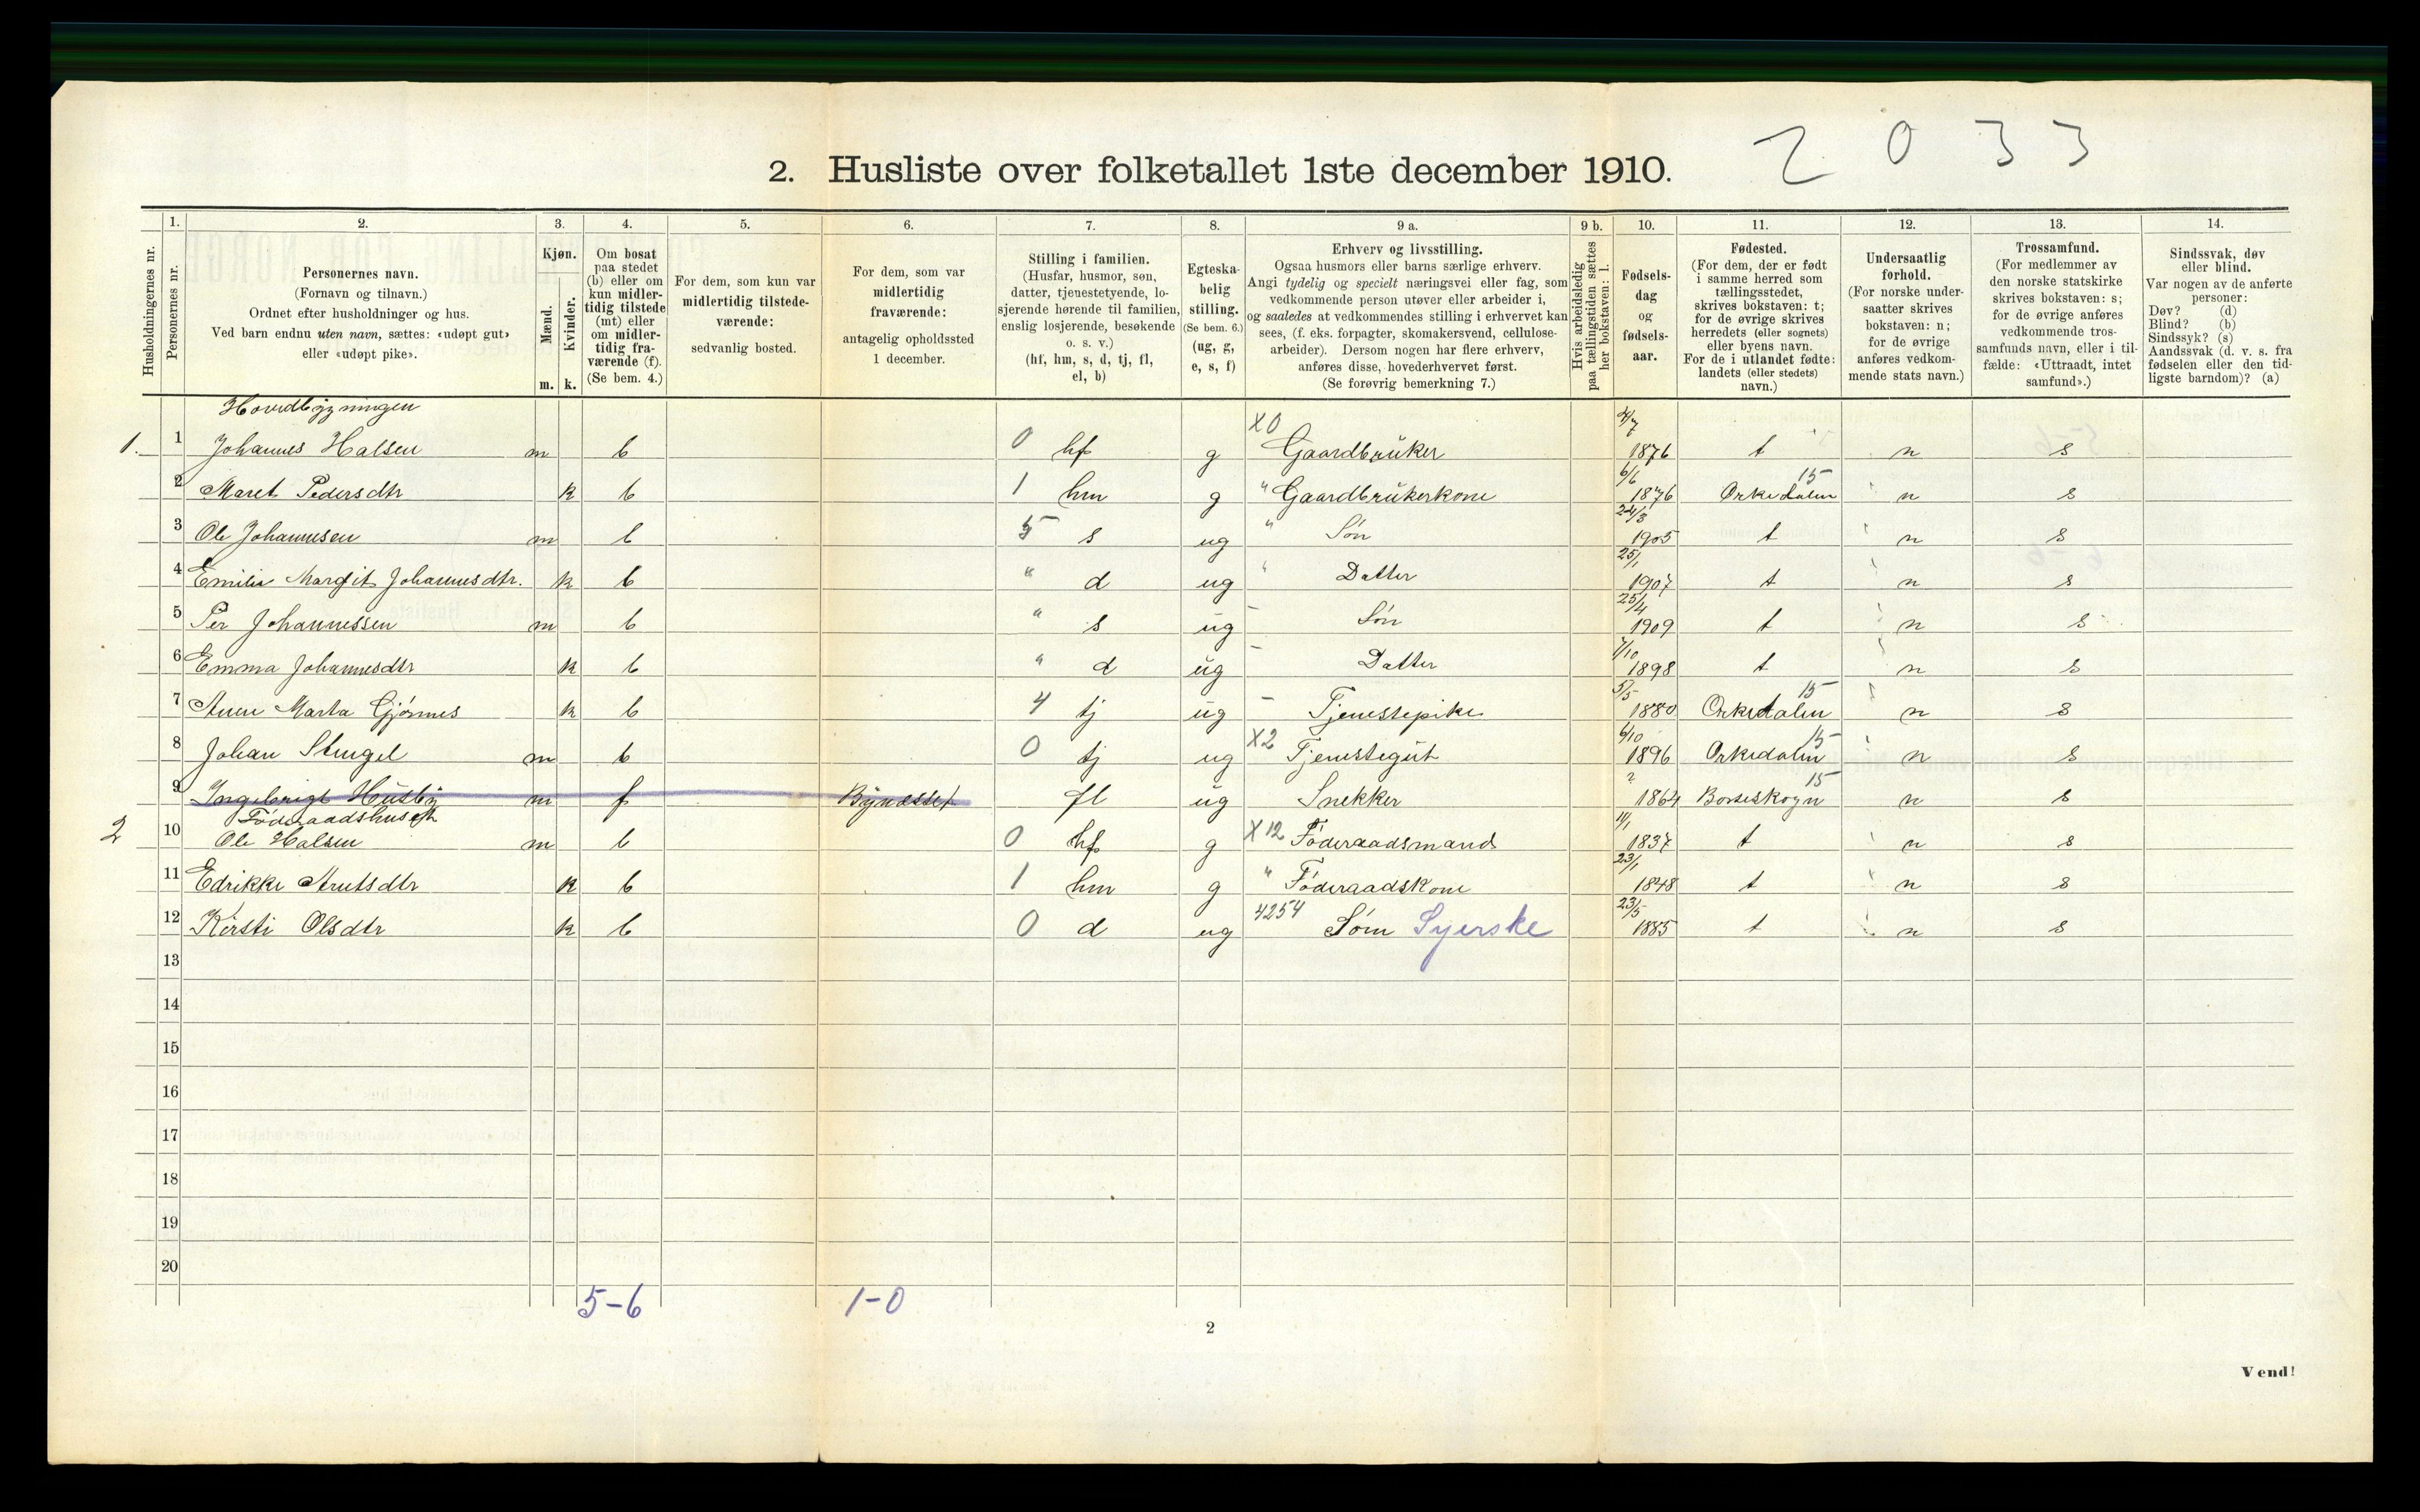 2033
2. Husliste over folketallet 1ste december 1910.
Husholdningernes nr.
1.
Personernes nr.
2.
Personernes navn.
(Fornavn og tilnavn.)
Ordnet efter husholdninger og hus.
Ved barn endnu uten navn, sættes: «udøpt gut»
eller «udøpt pike».
3.
Kjøn.
Mænd.
Kvinder.
m. k.
4.
Om bosat
paa stedet
(b) eller om
kun midler-
tidig tilstede
(mt) eller
om midler-
tidig fra-
værende (f).
(Se bem. 4.)
5.
For dem, som kun var
midlertidig tilstede-
værende:
sedvanlig bosted.
6.
For dem, som var
midlertidig
fraværende:
antagelig opholdssted
1 december.
7.
Stilling i familien.
(Husfar, husmor, søn,
datter, tjenestetyende, lo-
sjerende hørende til familien,
enslig losjerende, besøkende
o. s. v.)
(hf, hm, s, d, tj, fl,
el, b)
8.
Egteska-
belig
stilling.
(Se bem. 6.)
(ug, g,
e, s, f)
9 a.
Erhverv og livsstilling.
Ogsaa husmors eller barns særlige erhverv.
Angi tydelig og specielt næringsvei eller fag, som
vedkommende person utøver eller arbeider i,
og saaledes at vedkommendes stilling i erhvervet kan
sees, (f. eks. forpagter, skomakersvend, cellulose-
arbeider). Dersom nogen har flere erhverv,
anføres disse, hovederhvervet først.
(Se forøvrig bemerkning 7.)
9 b.
Hvis arbeidsledig
paa tællingstiden sættes
her bokstaven: l.
10.
Fødsels-
dag
og
fødsels-
aar.
11.
Fødested.
(For dem, der er født
i samme herred som
tællingsstedet,
skrives bokstaven: t;
for de øvrige skrives
herredets (eller sognets)
eller byens navn.
For de i utlandet fødte:
landets (eller stedets)
navn.)
12.
Undersaatlig
forhold.
(For norske under-
saatter skrives
bokstaven: n;
for de øvrige
anføres vedkom-
mende stats navn.)
13.
Trossamfund.
(For medlemmer av
den norske statskirke
skrives bokstaven: s;
for de øvrige anføres
vedkommende tros-
samfunds navn, eller i til-
fælde: «Uttraadt, intet
samfund».)
14.
Sindssvak, døv
eller blind.
Var nogen av de anførte
personer:
Døv? (d)
Blind? (b)
Sindssyk? (s)
Aandssvak (d. v. s. fra
fødselen eller den tid-
ligste barndom)? (a)
Hovedbygningen
1. 1 Johannes Halsen m b 0 hf g X0 Gaardbruker 4/7 1876 t n s
2 Maret Pedersdtr k b 1 hm g " Gaardbrukerkone 6/6 1876 Orkedalen 15 n s
3 Ole Johannesen m b 5 s ug " Søn 24/3 1905 t n s
4 Emilie Margit Johannesdtr. k b " d ug " Datter 25/1 1907 t n s
5 Per Johannessen m b " s ug - Søn 25/4 1909 t n s
6 Emma Johannesdtr k b " d ug - Datter 7/10 1898 t n s
7 Anne Marta Gjønnes k b 4 tj ug - Tjenestepike 5/5 1880 Orkedalen 15 n s
8 Johan Stengel m b 0 tj ug X2 Tjenestegut 6/10 1896 Orkedalen 15 n s
9 Ingebrigt Husby m f Bynesset fl ug Snekker ? 1864 Børseskogn 15 n s
Føderaadshuset
2 10 Ole Halsen m b 0 hf g X12 Føderaadsmand 11/1 1837 t n s
11 Edrikke Arntsdtr k b 1 hm g " Føderaadskone 23/1 1848 t n s
12 Kirsti Olsdtr k b 0 d ug 4254 Søm Syerske 23/5 1885 t n s
13
14
15
16
17
18
19
20
5-6 1-0
2
Vend!